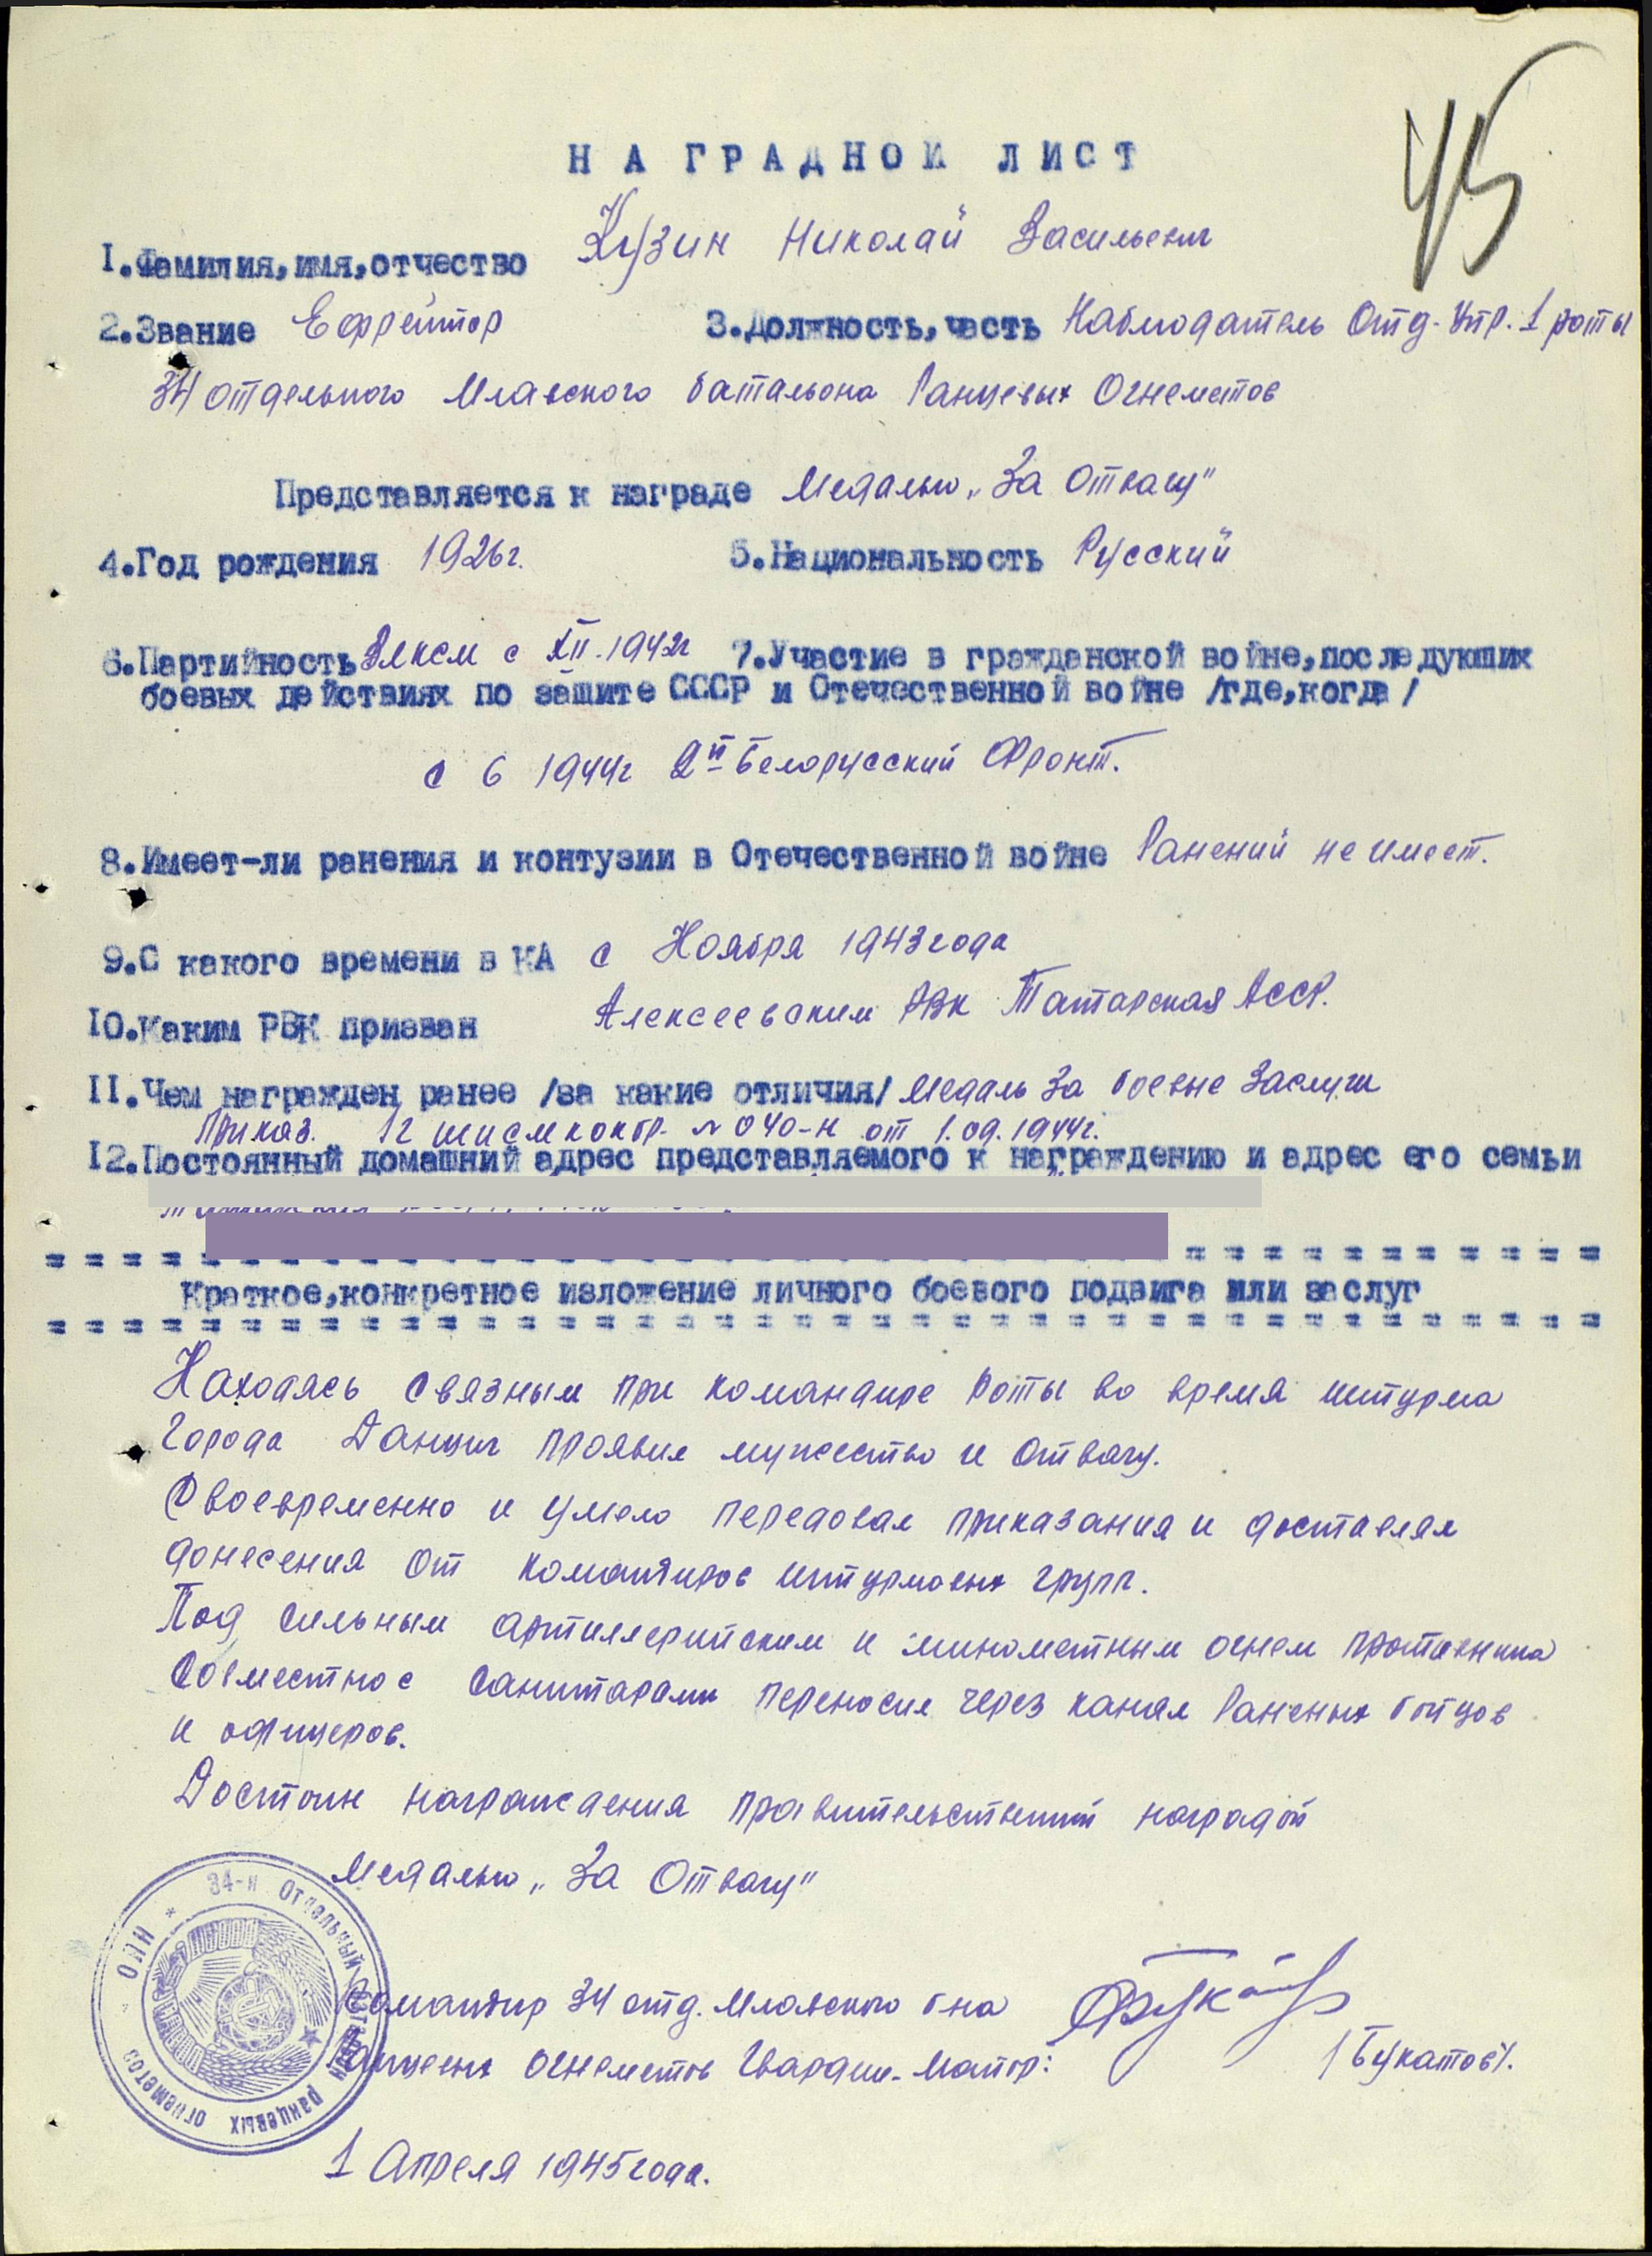 45
НАГРАДНОЙ ЛИСТ
1.Фамилия,имя,отчество Кузин Николай Васильевич
2.Звание Ефрейтор 3.Должность,часть Наблюдатель Отд. Упр. 1 роты
34 отдельного Млавского батальона Ранцевых Огнеметов
Представляется к награде Медалью „За Отвагу"
4.Год рождения 1926г. 5.Национальность Русский
6.Партийность ВЛКСМ с XII.1942г 7.Участие в гражданской войне,последующих
боевых действиях по защите СССР и Отечественной войне /где,когда/
с 6 1944г 2й Белорусский Фронт.
8.Имеет-ли ранения и контузии в Отечественной войне Ранений не имеет.
9.С какого времени в КА с Ноября 1943 года
10.Каким РВК призван Алексеевским РВК Татарская АССР.
11.Чем награжден ранее /за какие отличия/ Медаль За боевые Заслуги
Приказ. 12 № 040-н от 1.09.1944г.
12.Постоянный домашний адрес представляемого к награждению и адрес его семьи
= = = = = = = = = = = = = = = =
Краткое,конкретное изложение личного боевого подвига или заслуг
= = = = = = = = = = = = = = = = = = = = = = = = = = = = = = = = = = = = = = = =
Находясь связным при командире роты во время штурма
Города Данциг проявил мужество и отвагу.
Своевременно и умело передовал приказания и доставлял
донесения от командиров штурмовых групп.
Под сильным артиллерийским и минометным огнем противника
Совместно с санитарами переносил через канал Раненых бойцов
и офицеров.
Достоин награждения правительственной наградой
Медалью „За Отвагу"
Командир 34 отд. Млавского б-на
Ранцевых огнеметов Гвардии-Майор: /Букатов/.
1 Апреля 1945 года.
34-й Отдельный батальон ранцевых огнеметов * ОПН *